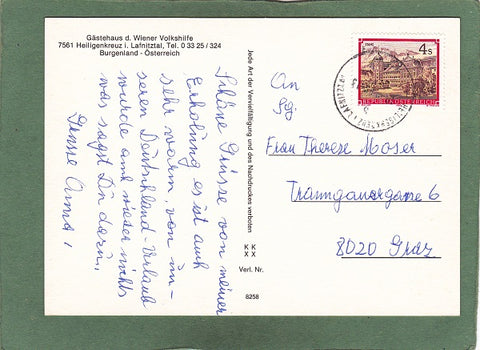 Gästehaus d. Wiener Volkshilfe
7561 Heiligenkreuz i. Lafnitztal, Tel. 0 33 25 / 324
Burgenland - Österreich
Schöne Grüsse von meiner
Erholung es ist auch
sehr warm, von un-
seren Deutschland-Urlaub
wurde auch wieder nichts
was sagst Du dazu,
Deine Anna,
Jede Art der Vervielfältigung und des Nachdruckes verboten
K K
X X
Verl. Nr.
8258
4s
REPUBLIK ÖSTERREICH
An
Sg.
Frau Therese Moser
Traungauergasse 6
8020 Graz